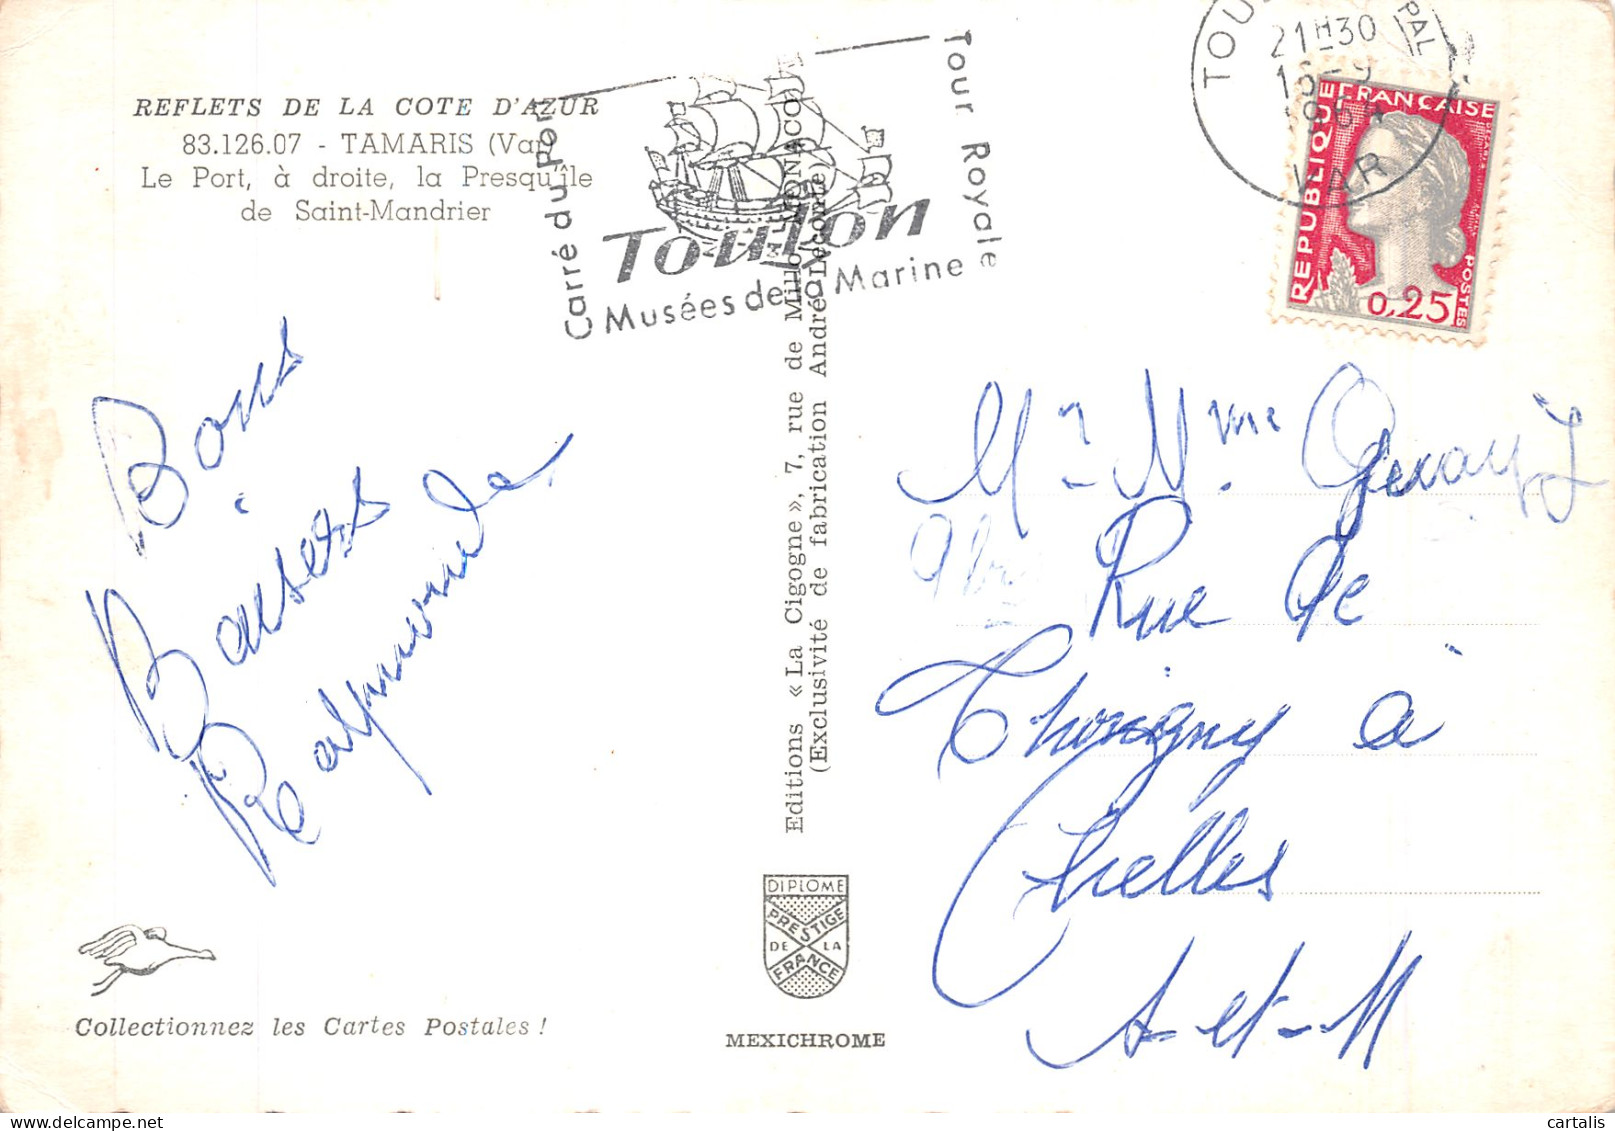 REFLETS DE LA COTE D'AZUR
83.126.07 - TAMARIS (Var)
Le Port, à droite, la Presqu'île
de Saint-Mandrier
Carré du Port
Toulon
Musées de la Marine
Tour Royale
21H30
16-9
VAR
REPUBLIQUE FRANÇAISE
POSTES
0,25
Bons
Baisers
Raymonde
Editions « La Cigogne », 7, rue de Millo, MONACO
(Exclusivité de fabrication André Leconte)
Mr - Mme
9 bis Rue de
Thorigny à
Chelles
S-et-M
DIPLOME
PRESTIGE
DE LA
FRANCE
Collectionnez les Cartes Postales !
MEXICHROME
cartalis